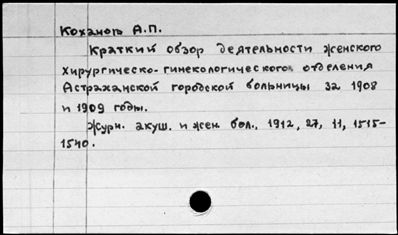 Коханов А.П.
Краткий обзор деятельности женского
хирургическо-гинекологического отделения
Астраханской городской больницы за 1908
и 1909 годы.
Журн. акуш. и жен. бол., 1912, 27, 11, 1515-
1540.